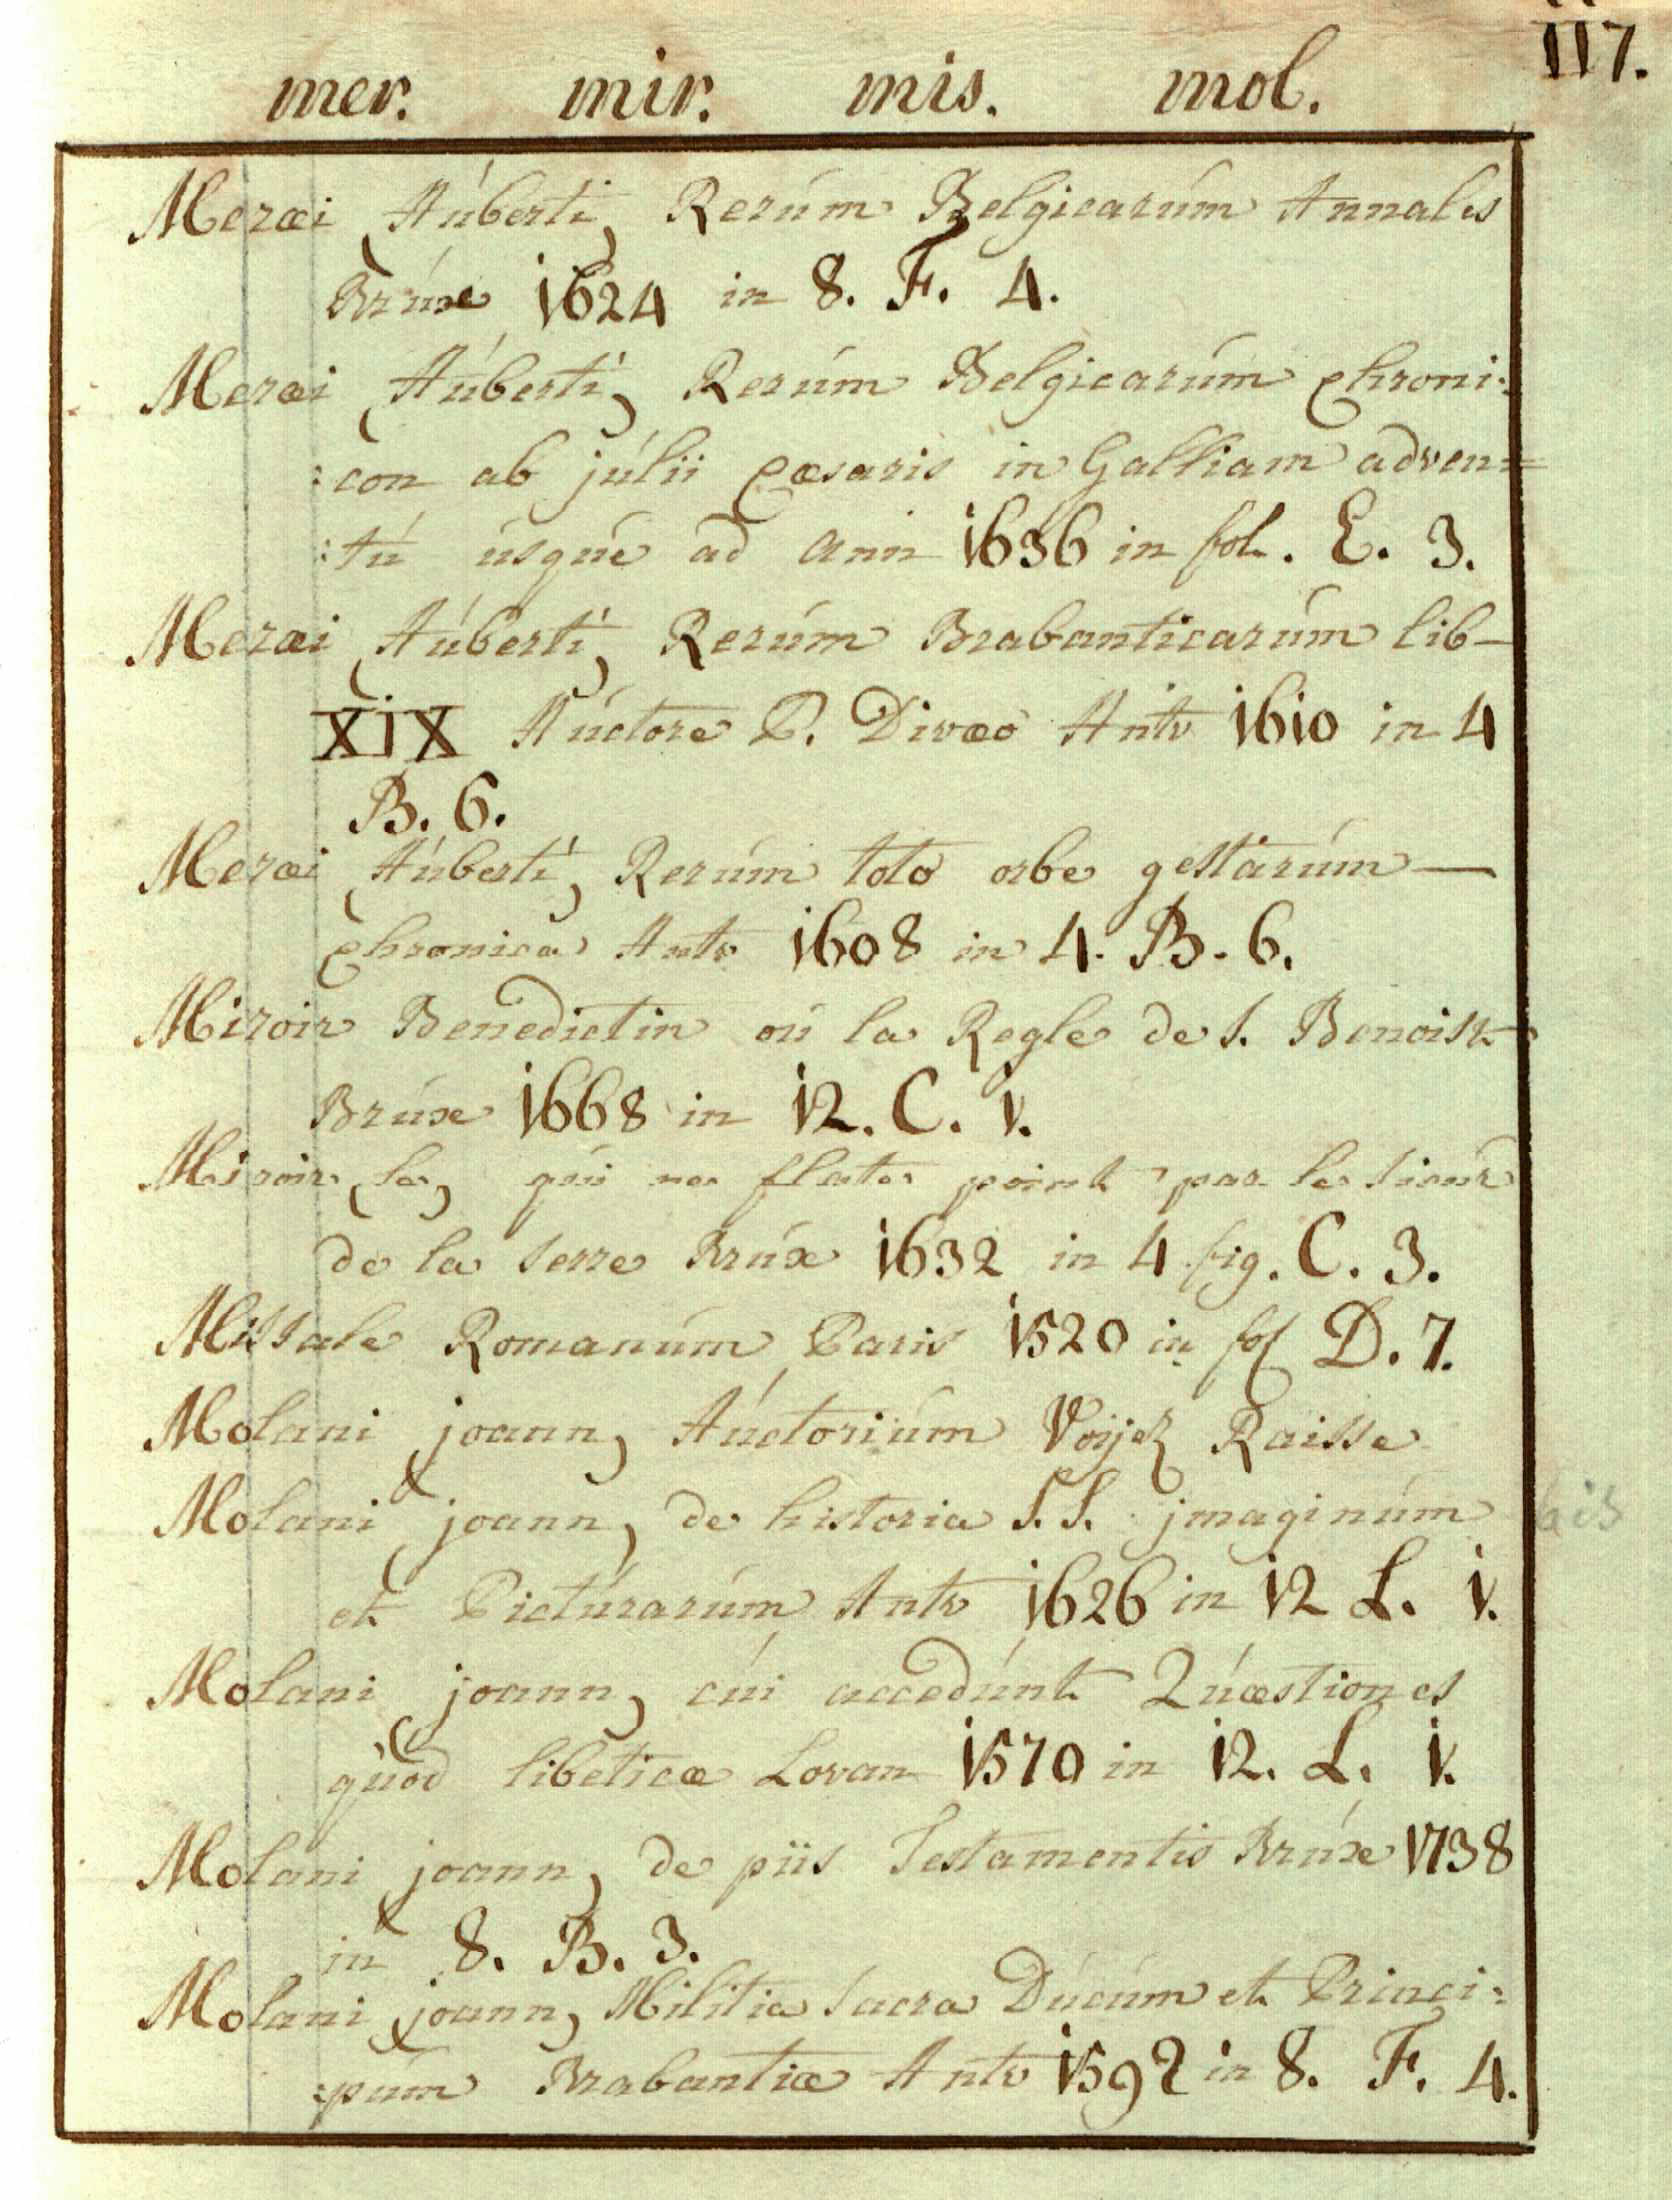 117.
mer. mir. mis. mol.
Meræi (Auberti) Rerum Belgicarum Annales
Bruxe 1624 in 8. F. 4.
Meræi (Auberti) Rerum Belgicarum Chroni:
:con ab julii Cæsaris in Galliam adven=
:tu usque ad Ann 1636 in fol. E. 3.
Meræi (Auberti) Rerum Brabanticarum lib—
XIX Auctore P. Divæo Antv 1610 in 4
B. 6.
Meræi (Auberti) Rerum toto orbe gestarum—
Chronica Antv 1608 in 4. B. 6.
Miroir Benedictin ou la Regle de S. Benoist
Bruxe 1668 in 12. C. 1.
Miroir (le) qui ne flate point par le Sieur
de la Serre Bruxe 1632 in 4 fig. C. 3.
Missale Romanum Paris 1520 in fol D. 7.
Molani (joann) Auctorium Voijez Raisse
Molani (joann) de historia S.S. jmaginum
bis
et Picturarum Antv 1626 in 12 L. 1.
Molani (joann) cui accedunt Quæstiones
quod libeticæ Lovan 1570 in 12. L. 1.
Molani (joann) de piis Testamentis Bruxe 1738
in 8. B. 3.
Molani (joann) Militia Sacra Ducum et Princi:
:pum Brabantiæ Antv 1592 in 8. F. 4.